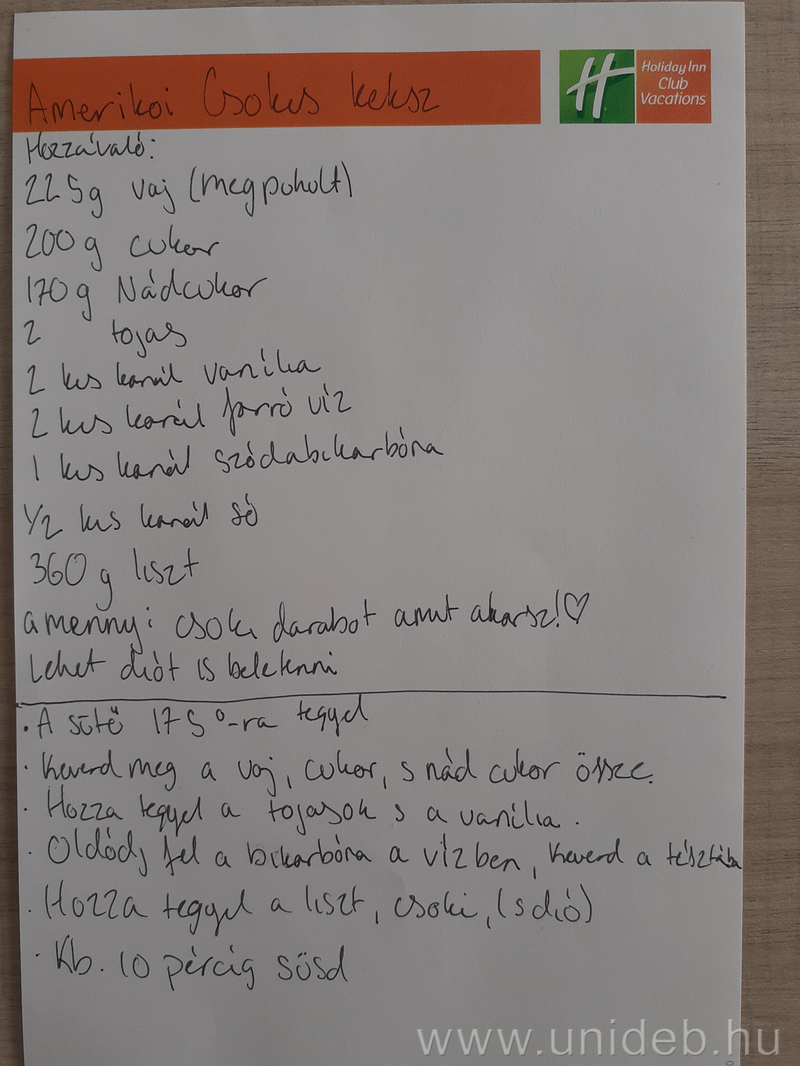 Amerikai Csokis keksz
Holiday Inn
Club
Vacations
Hozzávaló:
225g vaj (megpuholt)
200 g cukor
170 g Nádcukor
2 tojas
2 kis kanál vanília
2 kis kanál forró víz
1 kis kanál szódabikarbóna
1/2 kis kanál só
360 g liszt
amennyi csoki darabot amit akarsz!♡
Lehet diót is beletenni
• A sütő 175°-ra tegyel
• Keverd meg a vaj, cukor, s nád cukor össze.
• Hozza tegyel a tojasok s a vanilia.
• Oldódj fel a bikarbóna a vízben, keverd a tésztába
• Hozza tegyel a liszt, csoki, (s dió)
• Kb. 10 pércig süsd
www.unideb.hu